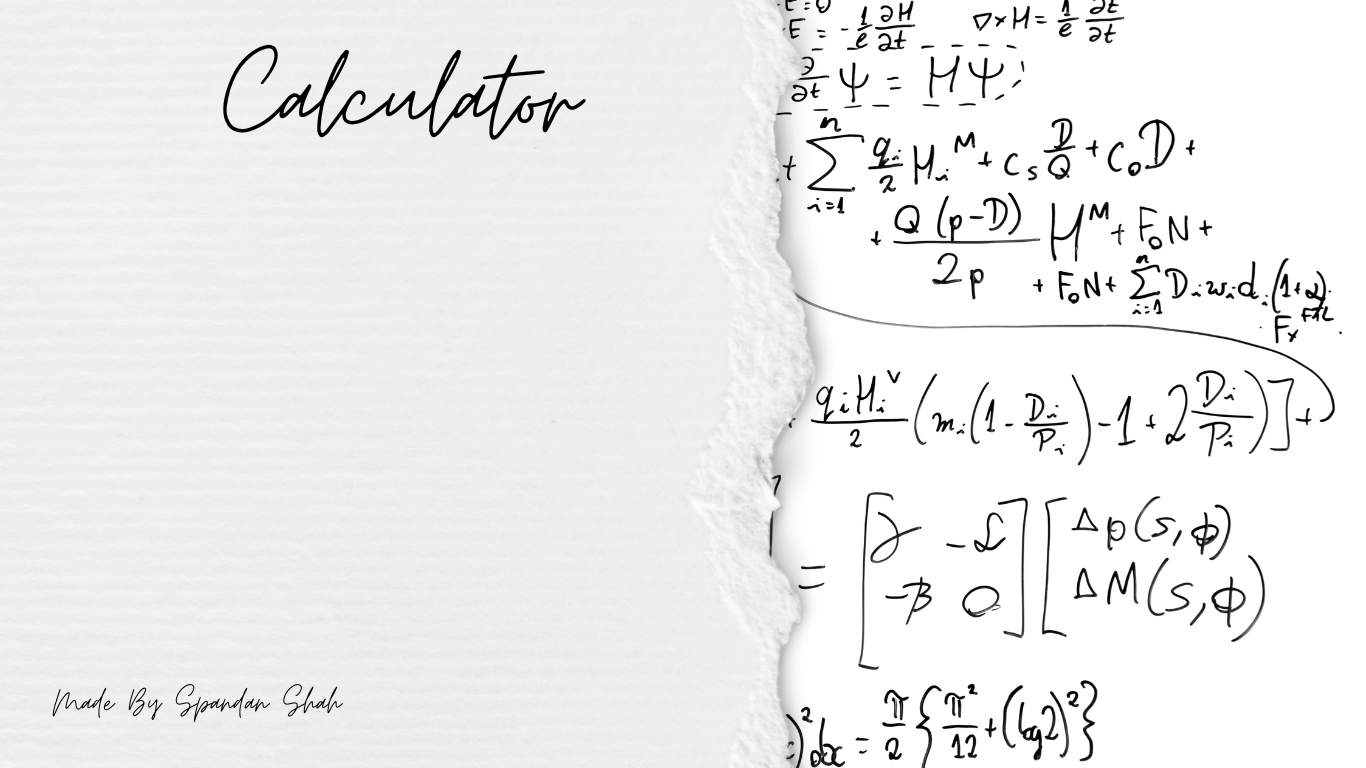 Calculator
Made By Spandan Shah
E = 0
E = - 1/e ∂H/∂t ∇×H = 1/e ∂t/∂t
∂/∂t Ψ = HΨ
+ n ∑ i=1 q i/2 H i M + C s D/Q + C o D +
+ Q (p-D)/2p H M + F o N +
+ F o N + n ∑ i=1 D i w i d i (1+α)
F x
q i H i v/2 (m i (1 - D i/P i) - 1 + 2 D i/P i)] +
= [
-β
] [ Δp(s,φ)
ΔM(s,φ)
)² dx = π/2 {π²/12 + (log2)²}